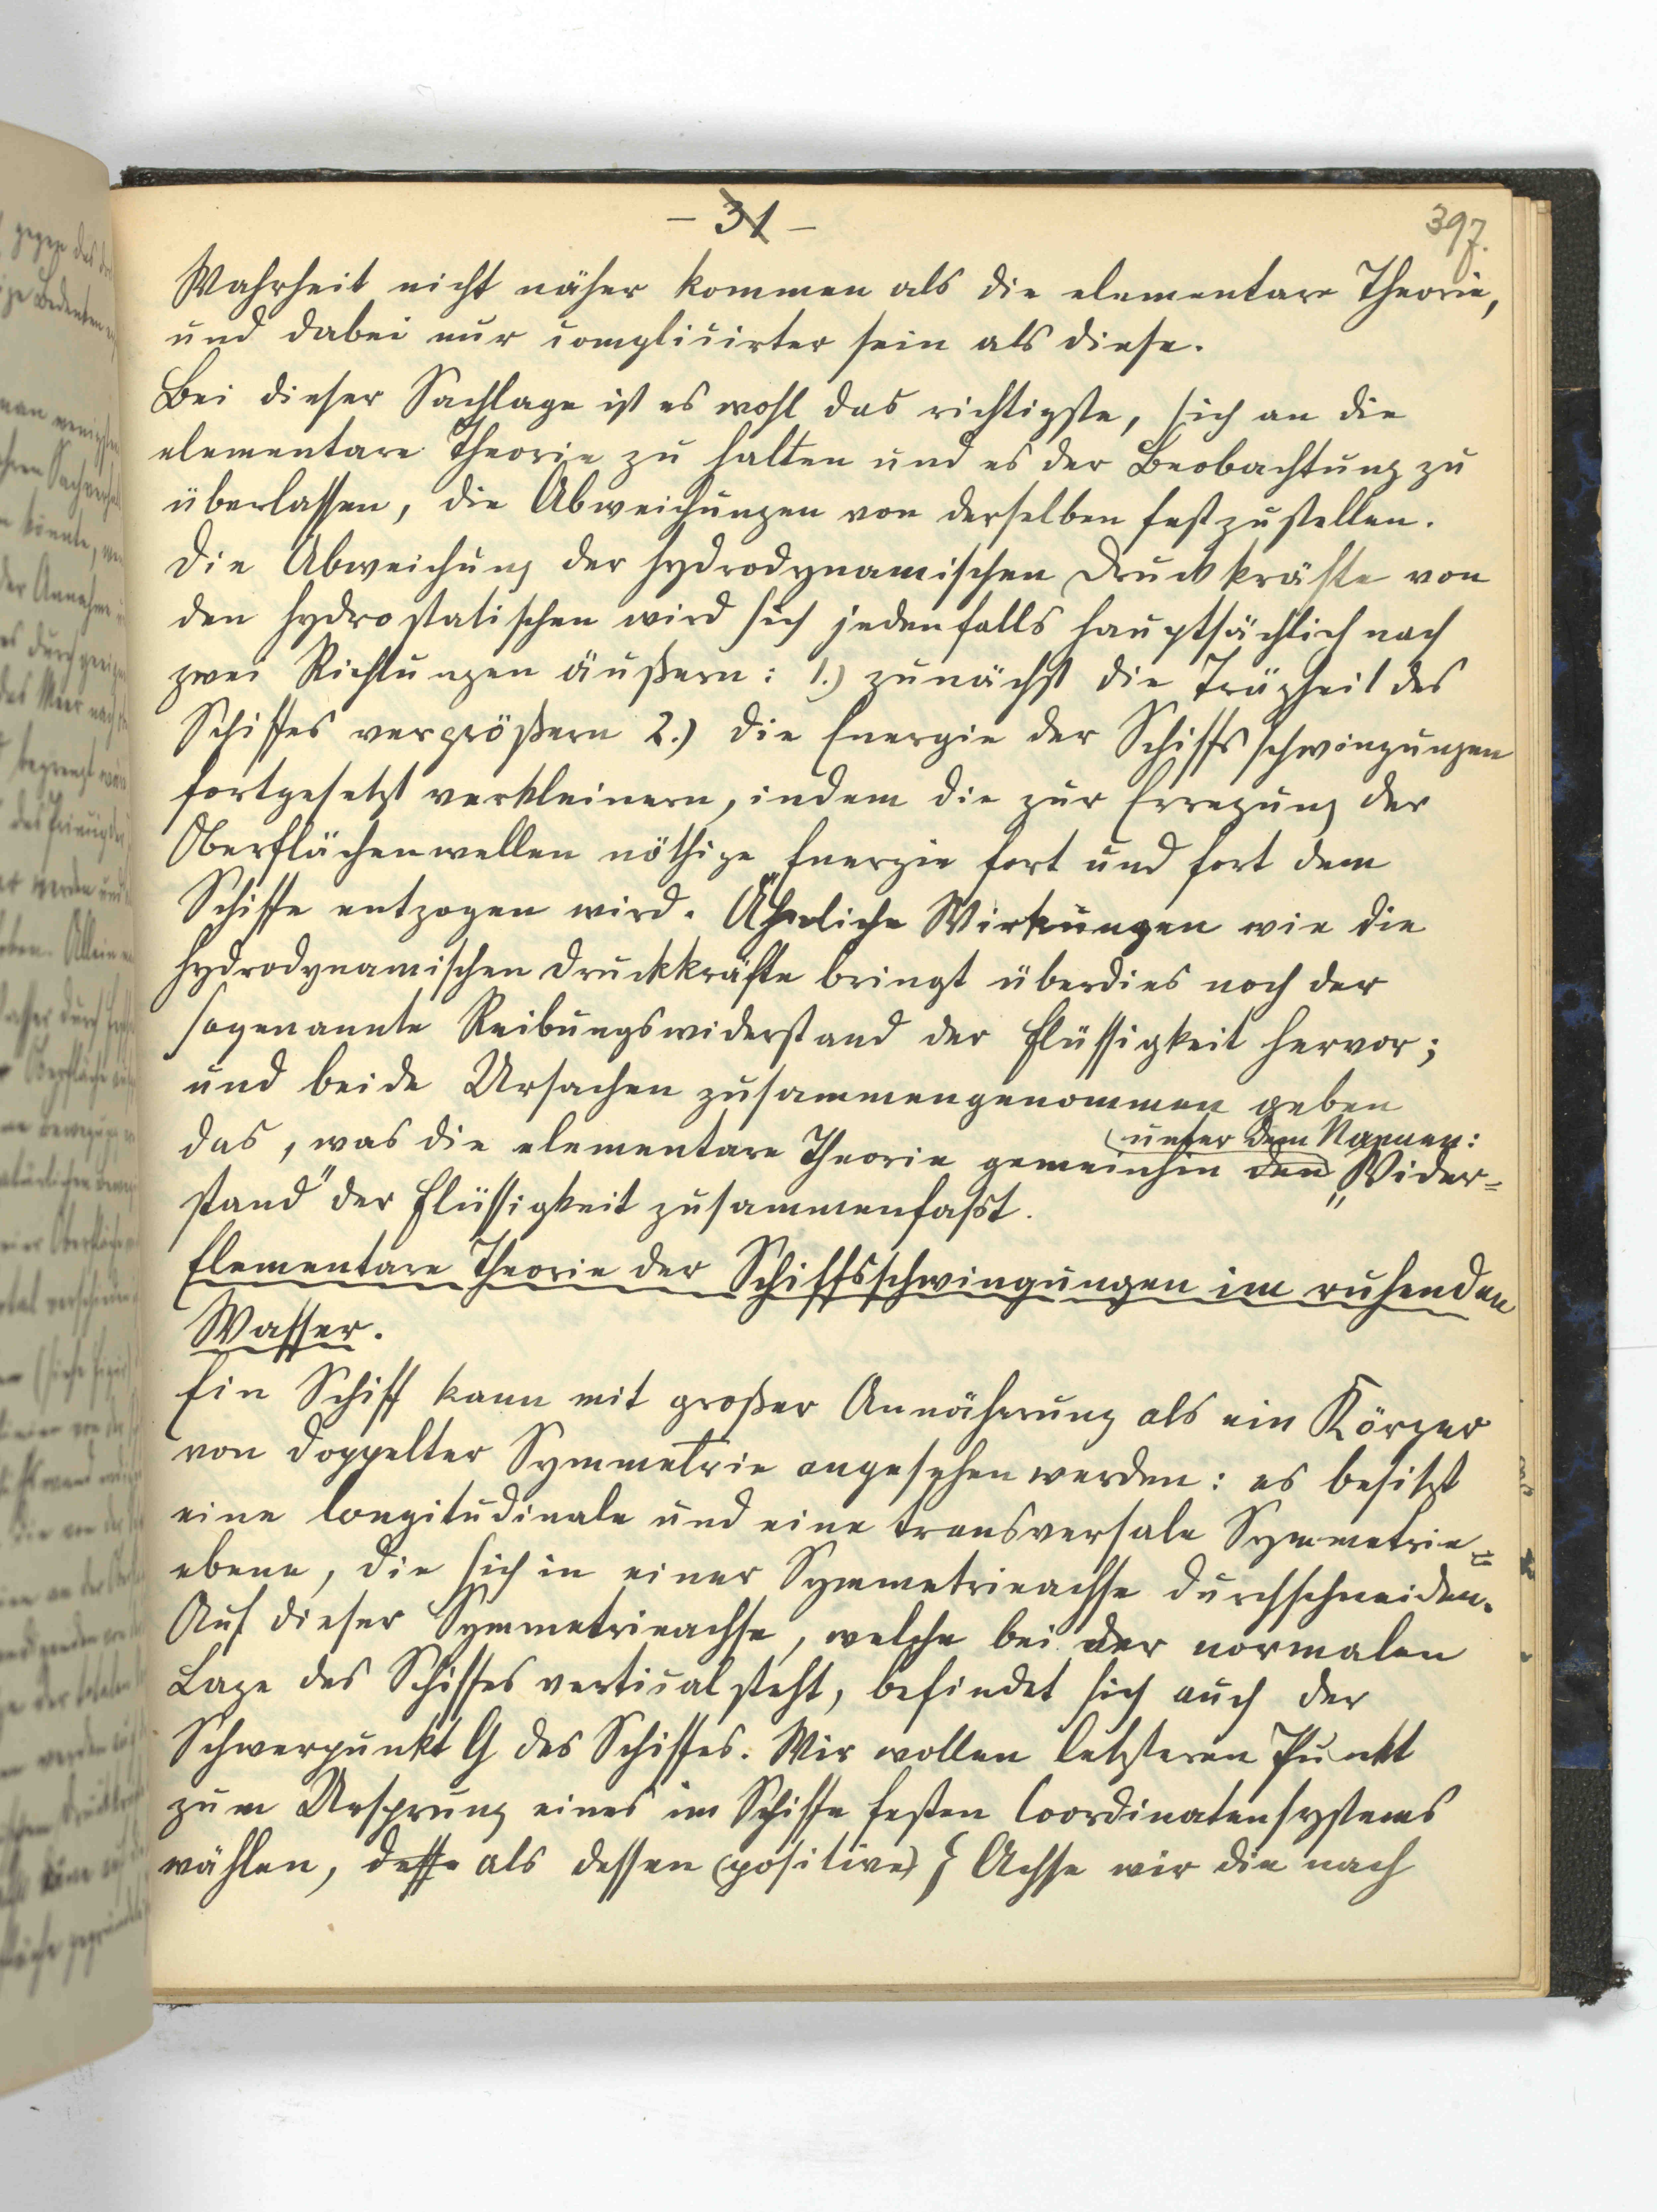 – 31 –
397.
Wahrheit nicht näher kommen als die elementare Theorie,
und dabei nur complicirter sein als diese.
Bei dieser Sachlage ist es wohl das richtigste, sich an die
elementare Theorie zu halten und es der Beobachtung zu
überlassen, die Abweichungen von derselben festzustellen.
Die Abweichung der hydrodynamischen Druckkräfte von
den hydrostatischen wird sich jedenfalls hauptsächlich nach
zwei Richtungen äußern: 1.) zunächst die Trägheit des
Schiffes vergrößern 2.) die Energie der Schiffsschwingungen
fortgesetzt verkleinern, indem die zur Erregung der
Oberflächenwellen nöthige Energie fort und fort dem
Schiffe entzogen wird. Ähnliche Wirkungen wie die
hydrodynamischen Druckkräfte bringt überdies noch der
sogenannte Reibungswiderstand der Flüssigkeit hervor;
und beide Ursachen zusammengenommen geben
(unter dem Namen:
das, was die elementare Theorie gemeinhin den „Wider=
stand" der Flüssigkeit zusammenfaßt.
Elementare Theorie der Schiffsschwingungen im ruhenden
Wasser.
Ein Schiff kann mit großer Annäherung als ein Körper
von doppelter Symmetrie angesehen werden: es besitzt
eine longitudinale und eine transversale Symmetrie=
ebene, die sich in einer Symmetrieachse durchschneiden.
Auf dieser Symmetrieachse, welche bei der normalen
Lage des Schiffes vertical steht, befindet sich auch der
Schwerpunkt G des Schiffes. Wir wollen letzteren Punkt
zum Ursprung eines im Schiffe festen Coordinatensystems
wählen, deße als dessen (positive) ζ Achse wir die nach